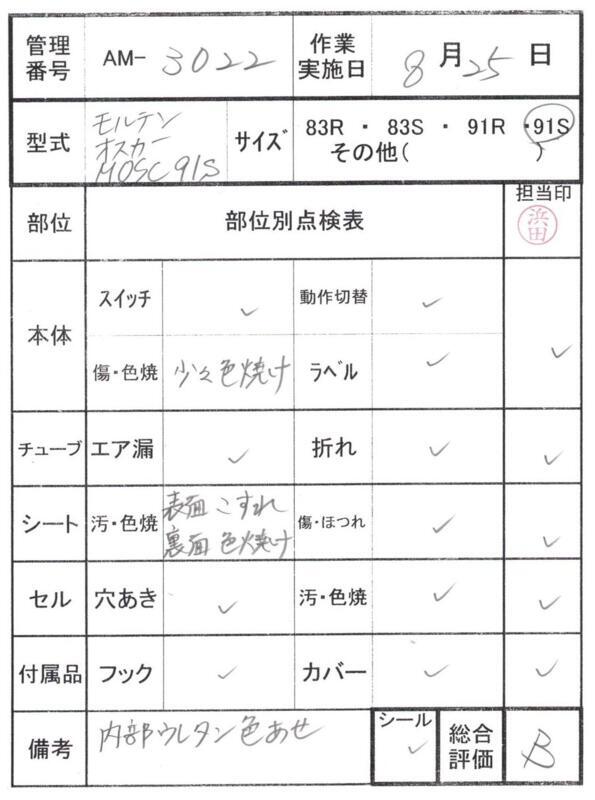 管理番号 AM- 3022 作業実施日 8月25日
型式 モルテン オスカー MOSC91S サイズ 83R ・ 83S ・ 91R ・ 91S
その他( )
部位 部位別点検表 担当印 浜田
本体 スイッチ ✓ 動作切替 ✓ ✓
傷・色焼 少々色焼け ラベル ✓
チューブ エア漏 ✓ 折れ ✓ ✓
シート 汚・色焼 表面こすれ 裏面色焼け 傷・ほつれ ✓ ✓
セル 穴あき ✓ 汚・色焼 ✓ ✓
付属品 フック ✓ カバー ✓ ✓
備考 内部ウレタン色あせ シール ✓ 総合評価 B